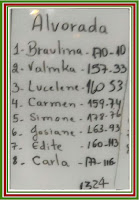 Alvorada
1- Braulina- 170-10
2- Valmka- 157.33
3- Lucelene- 160 53
4- Carmen- 159-74
5- Simone- 178-76
6- Josiane- 163-93
7- Edite- 160-113
8- Carla-
1324